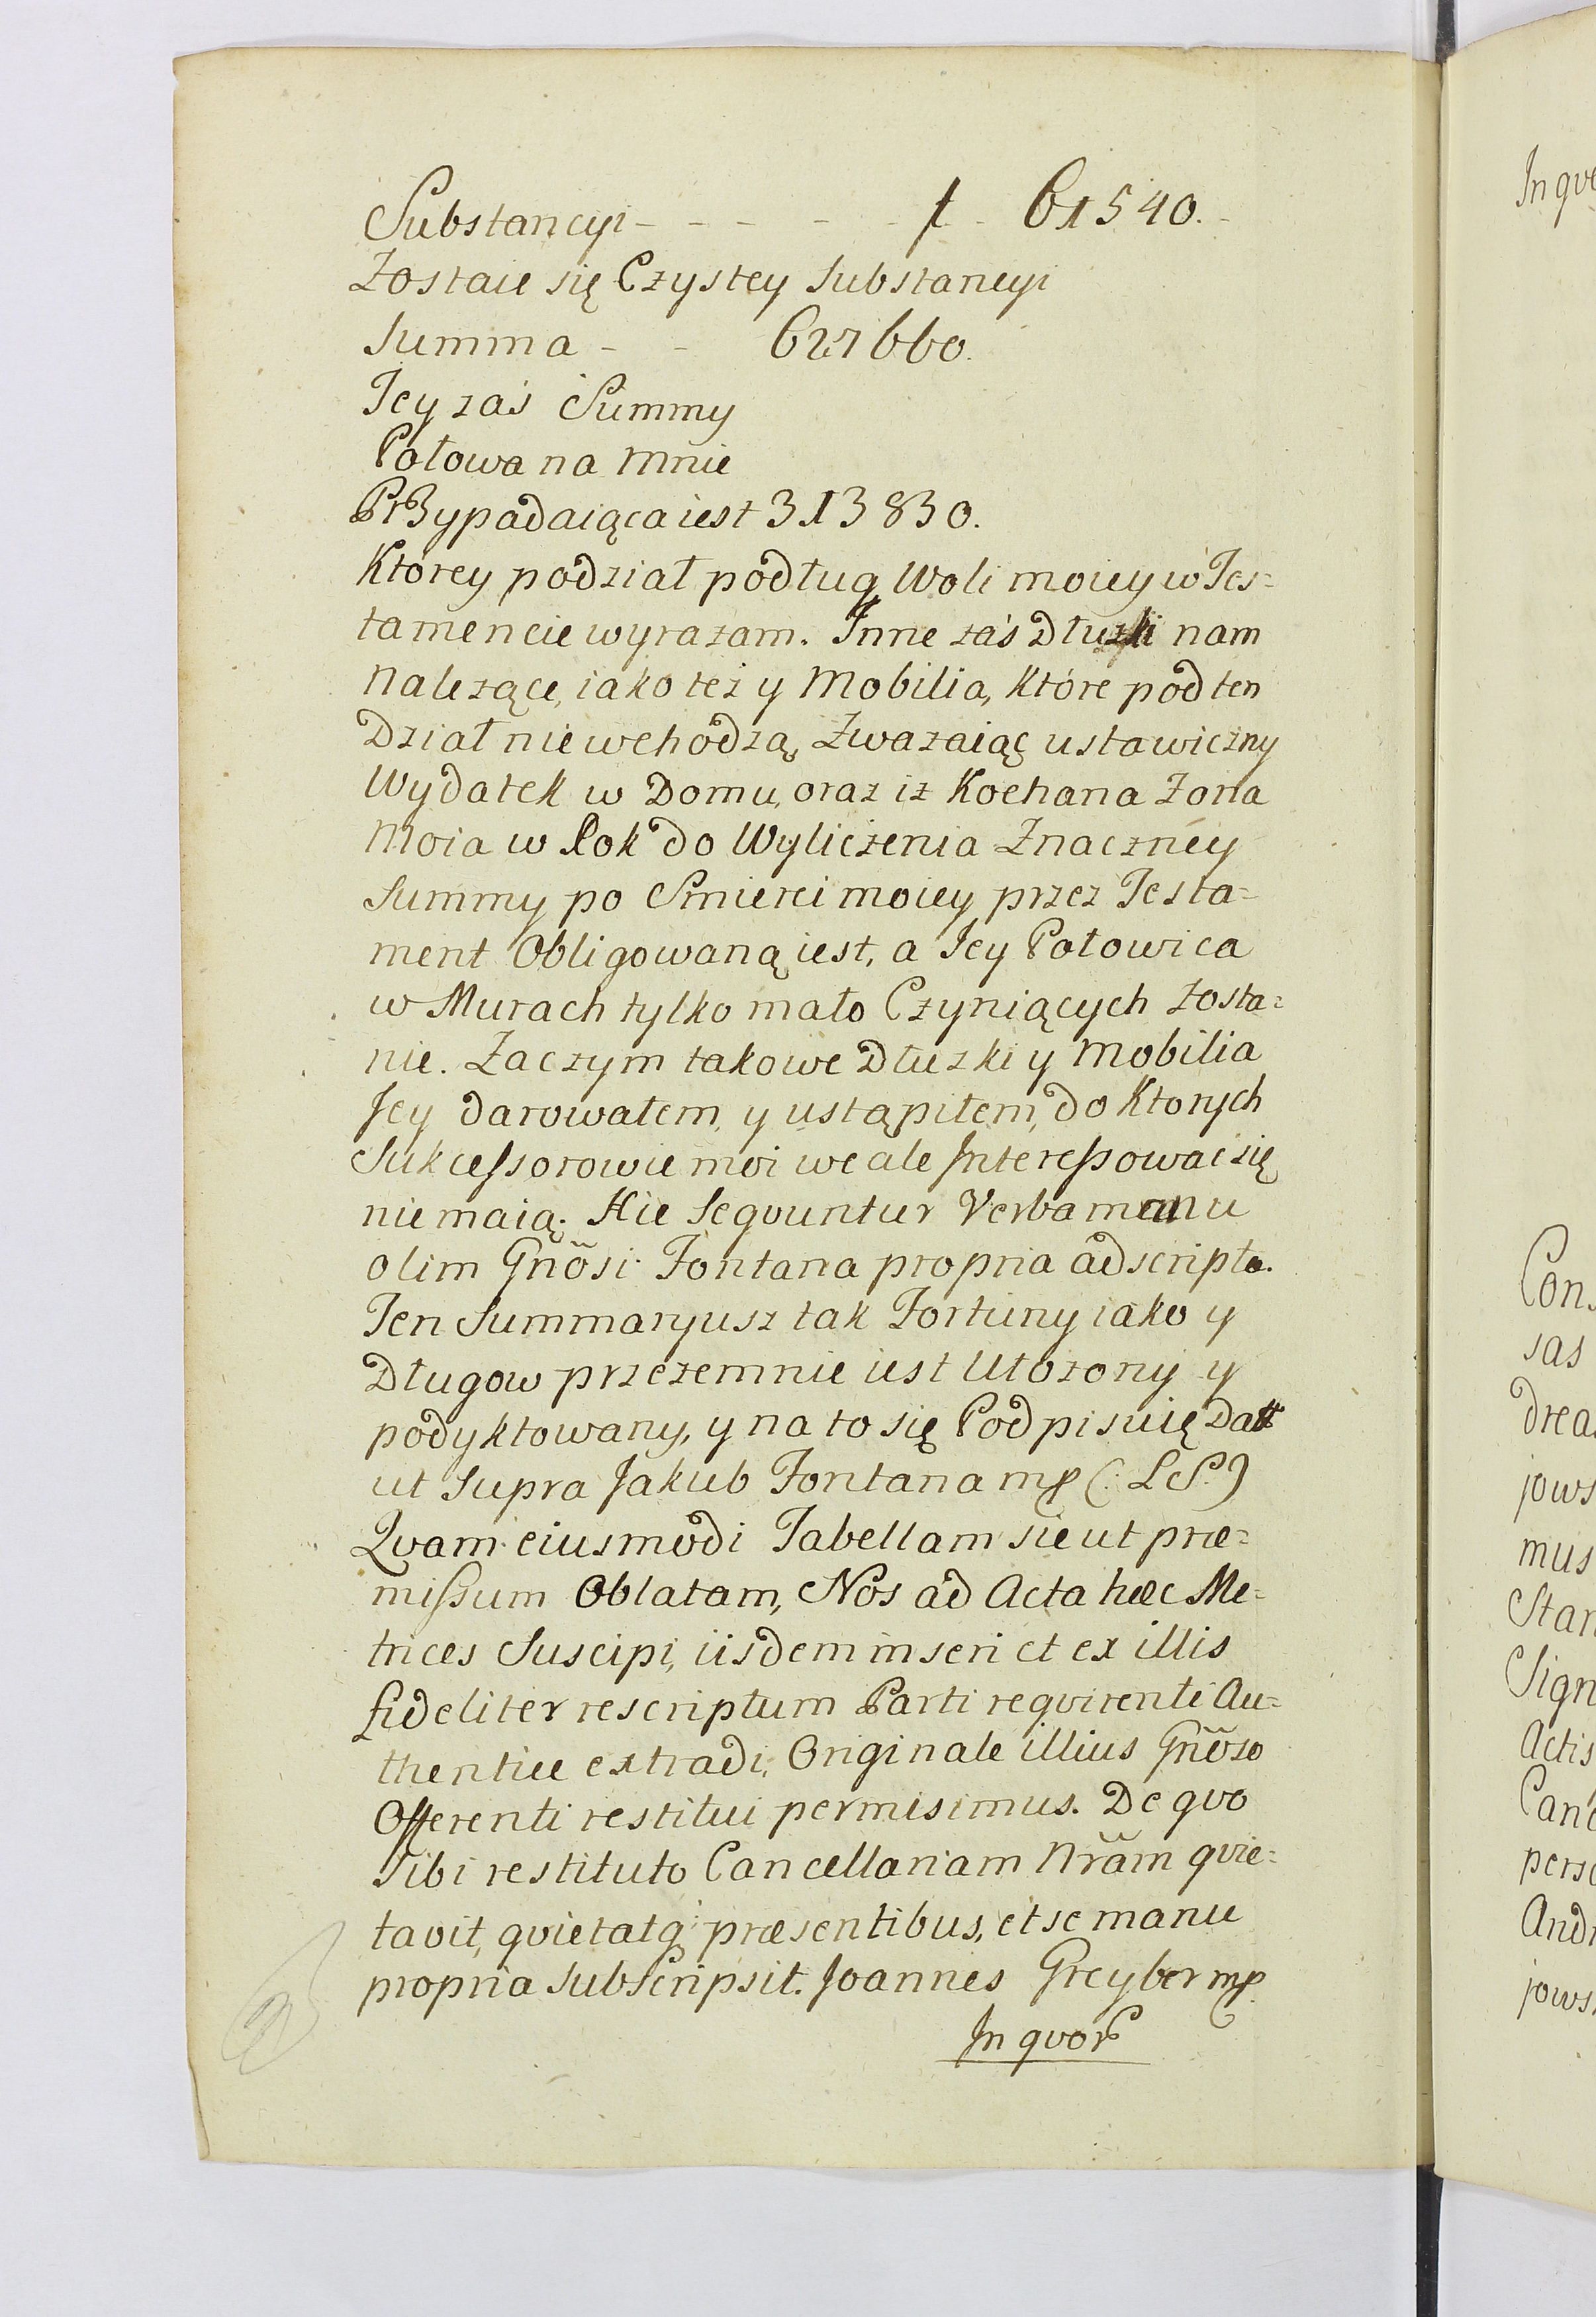 Substancyi - - - - - ƚ - 61540. -
Zostaie się Czystey Substancyi
Summa - - 627660.
Tey zaś Summy
Połowa na mnie
Przypadaiąca iest 313830.
Ktorey podział podług Woli moiey w Tes=
tamencie wyrazam. Inne zaś Dłużki nam
Należące, iako też y Mobilia, które pod ten
Dział nie wchodzą, Zwazaiąc ustawiczny
Wydatek w Domu, oraz iz Kochana Zona
Moia w Rok do Wyliczenia Znaczney
Summy po Smierci moiey przez Testa=
ment Obligowaną iest, a Jey Połowica
w Murach tylko mało Czyniących zosta=
nie. Zaczym takowe Dłuzki y Mobilia
Jey darowałem, y ustąpiłem, do Ktorych
Sukcessorowie moi wcale Interessować się
nie maią. Hic Seqvuntur Verba manu
olim Gñosi Fontana propria adscripta.
Ten Summaryusz tak Fortuny iako y
Długow przezemnie iest Ułozony y
podyktowany, y na to się Podpisuię Datt
ut Supra Jakub Fontana mp (: L S :)
Qvam eiusmodi Tabellam sicut præ=
missum Oblatam, Nos ad Acta hæc Me=
trices Suscipi, iisdem inseri et ex illis
fideliter rescriptum Parti reqvirenti Au=
thentice extradi, Originale illius Gñoso
Offerenti restitui permisimus. De qvo
Sibi restituto Cancellariam Nrãm qvie=
tavit, qvietatq: præsentibus, et se manu
propria Subscripsit. Joannes Greyber mp.
In qvor
In qve
Con
sas
drea
jows
mus
Stan
Sign
Actis
Canc
perso
Andr
jows